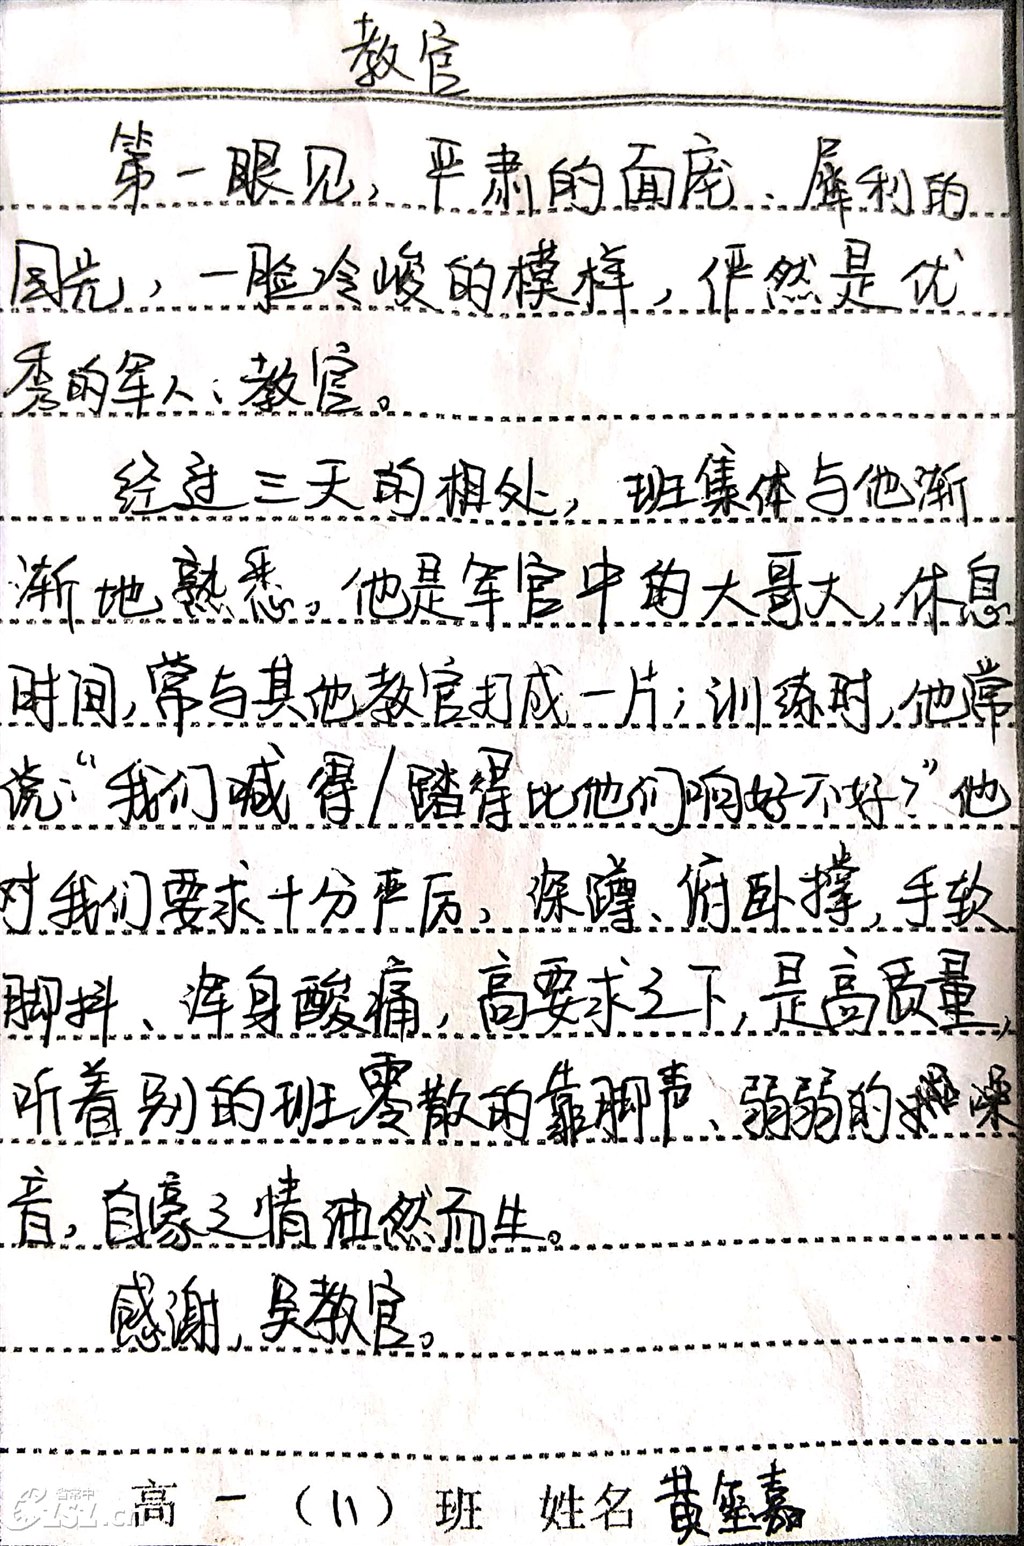 教官
第一眼见，严肃的面庞、犀利的
目光，一脸冷峻的模样，俨然是优
秀的军人：教官。
经过三天的相处，班集体与他渐
渐地熟悉。他是军官中的大哥大，休息
时间，常与其他教官打成一片；训练时，他常
说：“我们喊得/踏得比他们响好不好？”他
对我们要求十分严厉、深蹲、俯卧撑，手软
脚抖、浑身酸痛，高要求之下，是高质量，
听着别的班零散的靠脚声、弱弱的噪
音，自豪之情油然而生。
感谢，吴教官。
高一（11）班 姓名 黄奎嘉
省常中